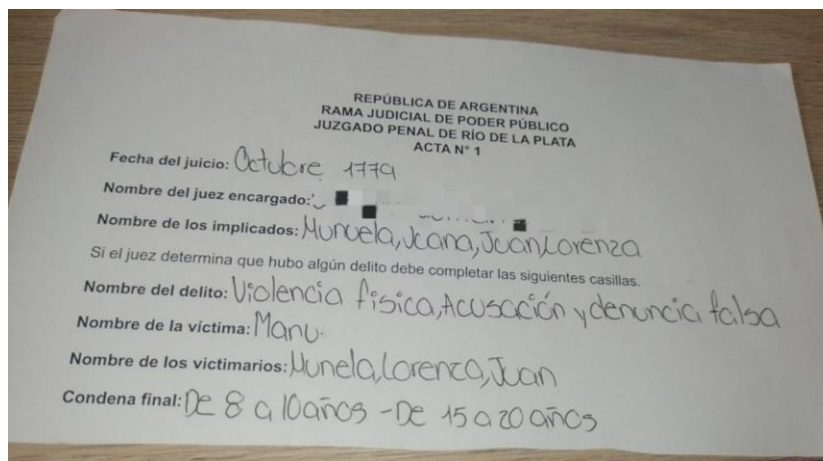 REPÚBLICA DE ARGENTINA
RAMA JUDICIAL DE PODER PÚBLICO
JUZGADO PENAL DE RÍO DE LA PLATA
ACTA N° 1
Fecha del juicio: Octubre 1779
Nombre del juez encargado:
Nombre de los implicados: Munuela, Juana, Juan, Lorenza
Si el juez determina que hubo algún delito debe completar las siguientes casillas.
Nombre del delito: Violencia física, Acusación y denuncia falsa
Nombre de la víctima: Manu.
Nombre de los victimarios: Munela, Lorenza, Juan
Condena final: De 8 a 10 años - De 15 a 20 años